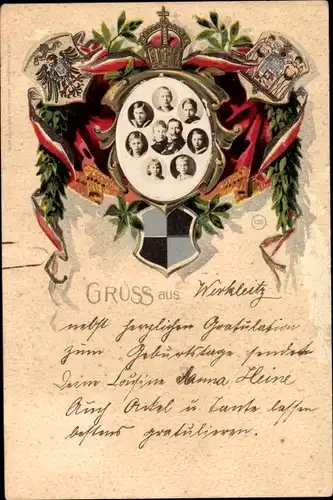 GRUSS aus Werkleitz
nebst herzlichen Gratulation
zum Geburtstage sendet
Deine Cousine Hanna Heine
Auch Onkel u Tante lassen
bestens gratulieren.